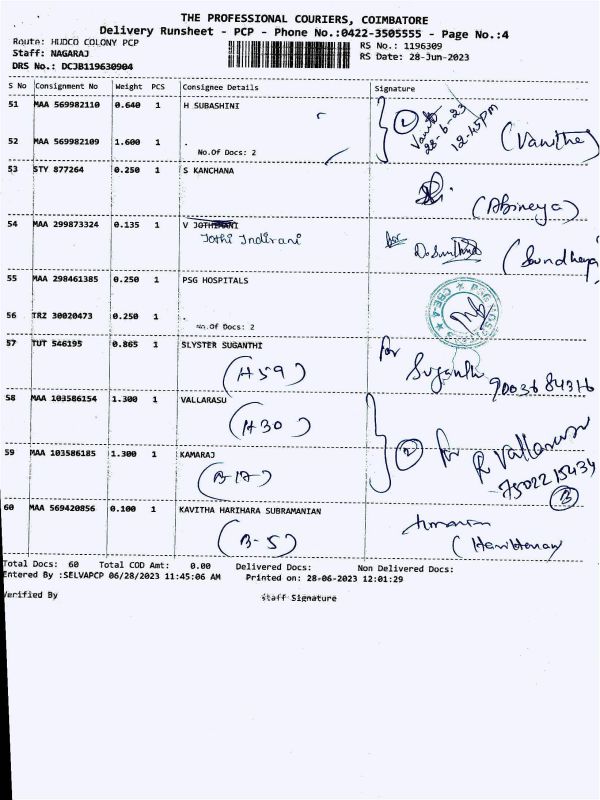 THE PROFESSIONAL COURIERS, COIMBATORE
Delivery Runsheet - PCP - Phone No.:0422-3505555 - Page No.:4
Route: HUDCO COLONY PCP
RS No.: 1196309
Staff: NAGARAJ
RS Date: 28-Jun-2023
DRS No.: DCJB119630904
S No Consignment No Weight PCS Consignee Details Signature
51 MAA 569982110 0.640 1 H SUBASHINI
1
Vanitha
28-6-23
12.45PM
(Vanitha)
52 MAA 569982109 1.600 1 .
No.Of Docs: 2
53 STY 877264 0.250 1 S KANCHANA
(Abineya)
54 MAA 299873324 0.135 1 V
Jothi Indirani
for
55 MAA 298461385 0.250 1 PSG HOSPITALS
56 TRZ 30020473 0.250 1 .
No.Of Docs: 2
57 TUT 546195 0.865 1 SLYSTER SUGANTHI
(H59)
for Suganthi
9003684316
58 MAA 103586154 1.300 1 VALLARASU
(H30)
2 for R Vallarasu
7502215434
59 MAA 103586185 1.300 1 KAMARAJ
(B-17)
B
60 MAA 569420856 0.100 1 KAVITHA HARIHARA SUBRAMANIAN
(B-5)
Total Docs: 60 Total COD Amt: 0.00 Delivered Docs: Non Delivered Docs:
Entered By :SELVAPCP 06/28/2023 11:45:06 AM Printed on: 28-06-2023 12:01:29
Verified By Staff Signature